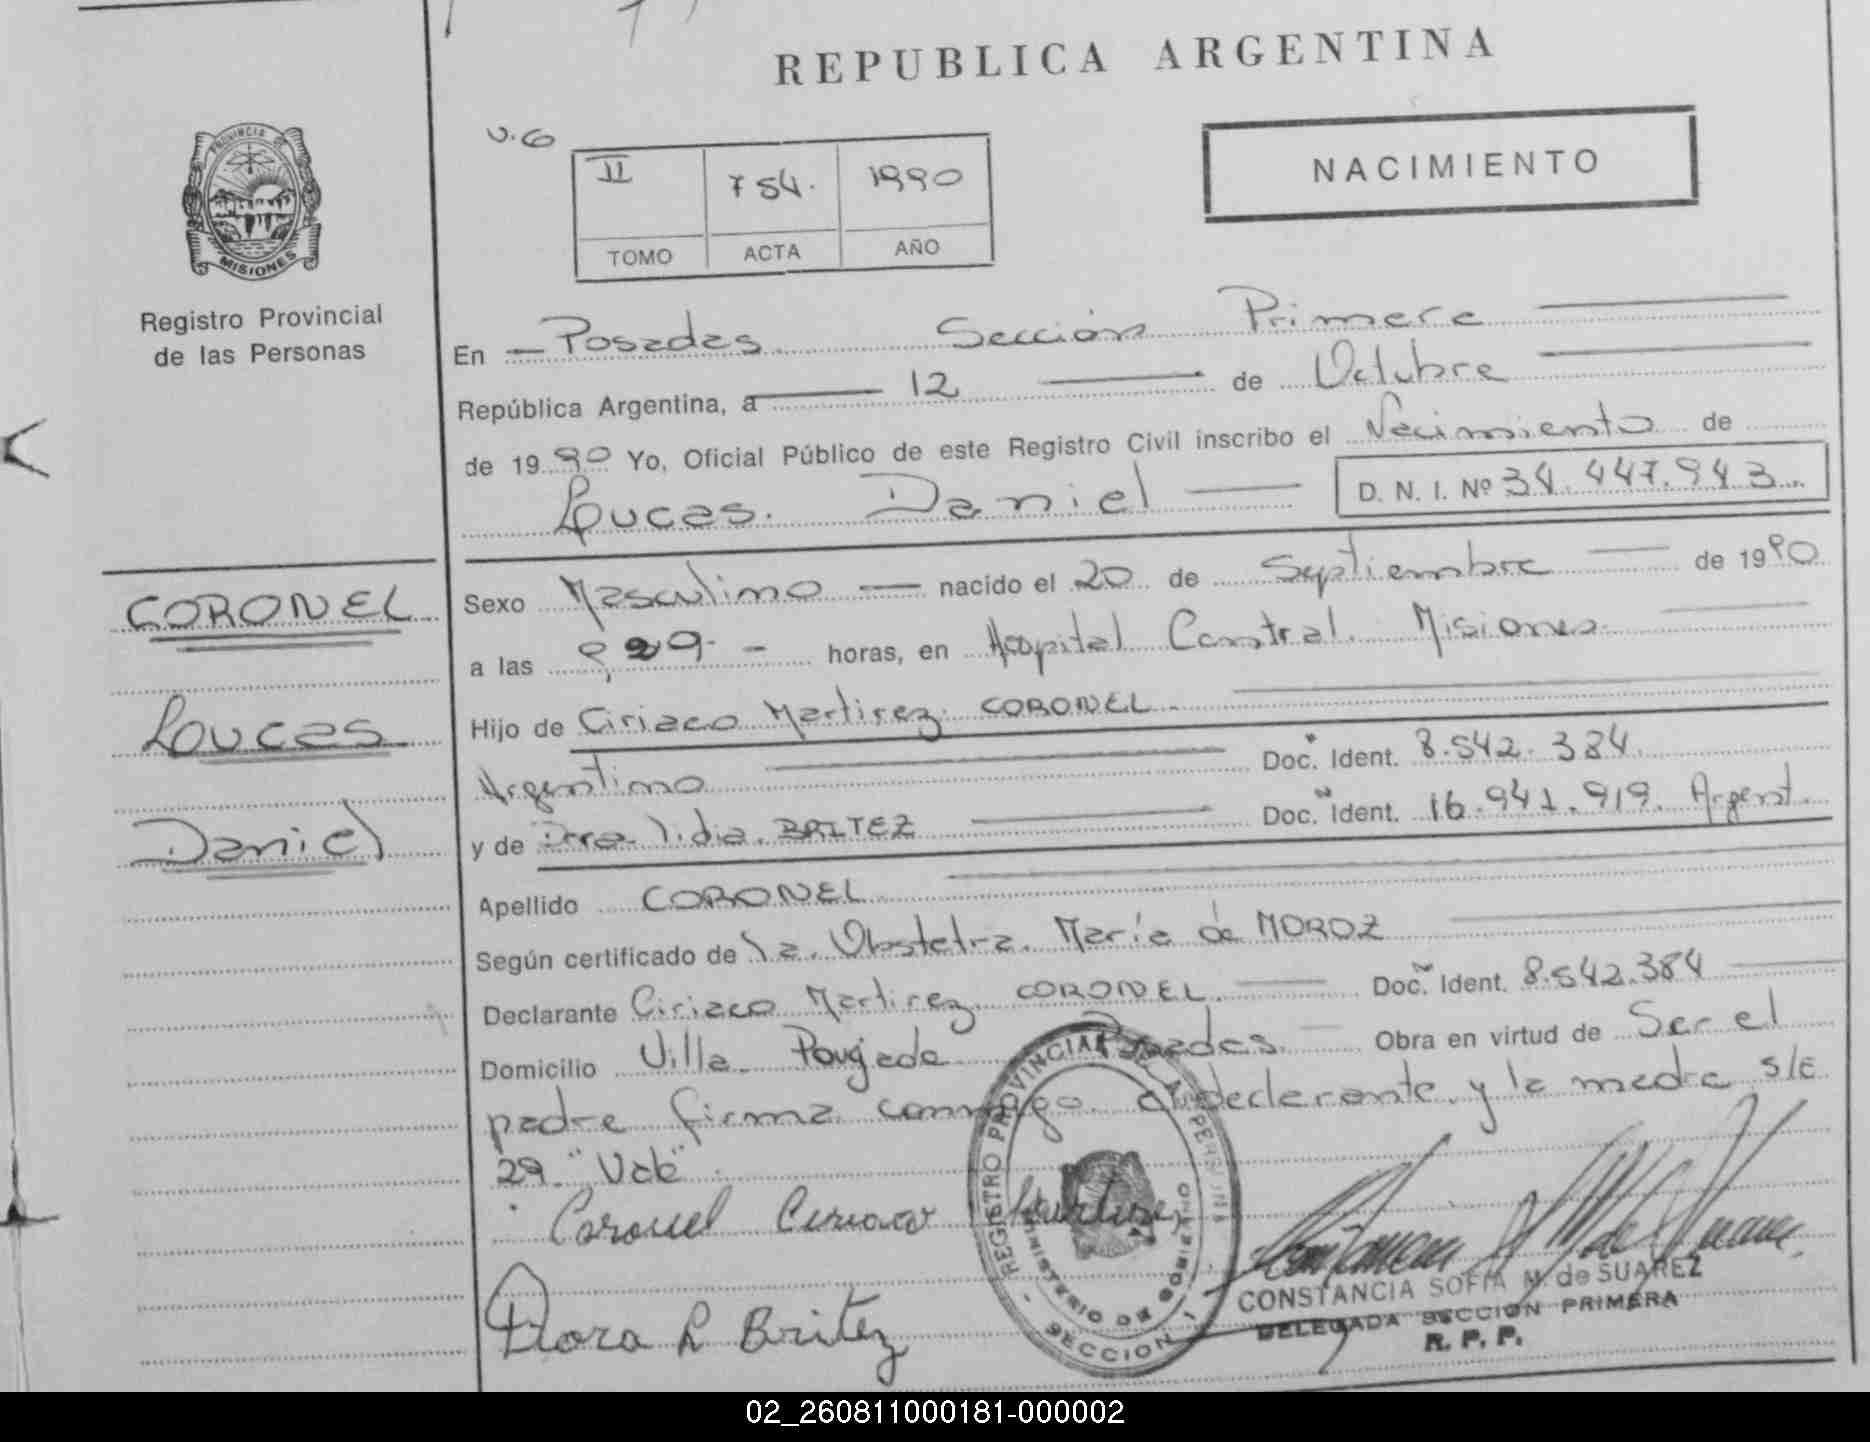 REPUBLICA ARGENTINA
PROVINCIA DE
MISIONES
Registro Provincial
de las Personas
II 754. 1990
TOMO ACTA AÑO
NACIMIENTO
En Posadas Sección Primera
República Argentina, a 12 de Octubre
de 1990 Yo, Oficial Público de este Registro Civil inscribo el Nacimiento de
Loucas. Daniel
D. N. I. Nº 34.447.943
CORONEL
Loucas
Daniel
Sexo Masculino nacido el 20 de Septiembre de 1990
a las horas, en Hospital Central. Misiones
Hijo de Ciriaco Martirez. CORONEL
Argentino Doc. Ident. 8.542.384.
y de Lidia. BRITEZ Doc. Ident. 16.941.919. Argent.
Apellido CORONEL
Según certificado de la. Obstetra. María de MOROZ
Declarante Ciriaco Martirez. CORONEL. Doc. Ident. 8.542.384
Domicilio Villa Poujade Posadas. Obra en virtud de Ser el
padre firma conmigo el declarante y la madre S/E
29. "Vale"
Coronel Ciriaco
Dora L Britez
REGISTRO PROVINCIAL
MINISTERIO DE GOBIERNO
SECCION 1
CONSTANCIA SOFIA M. de SUAREZ
DELEGADA SECCION PRIMERA
R. P. P.
02_260811000181-000002